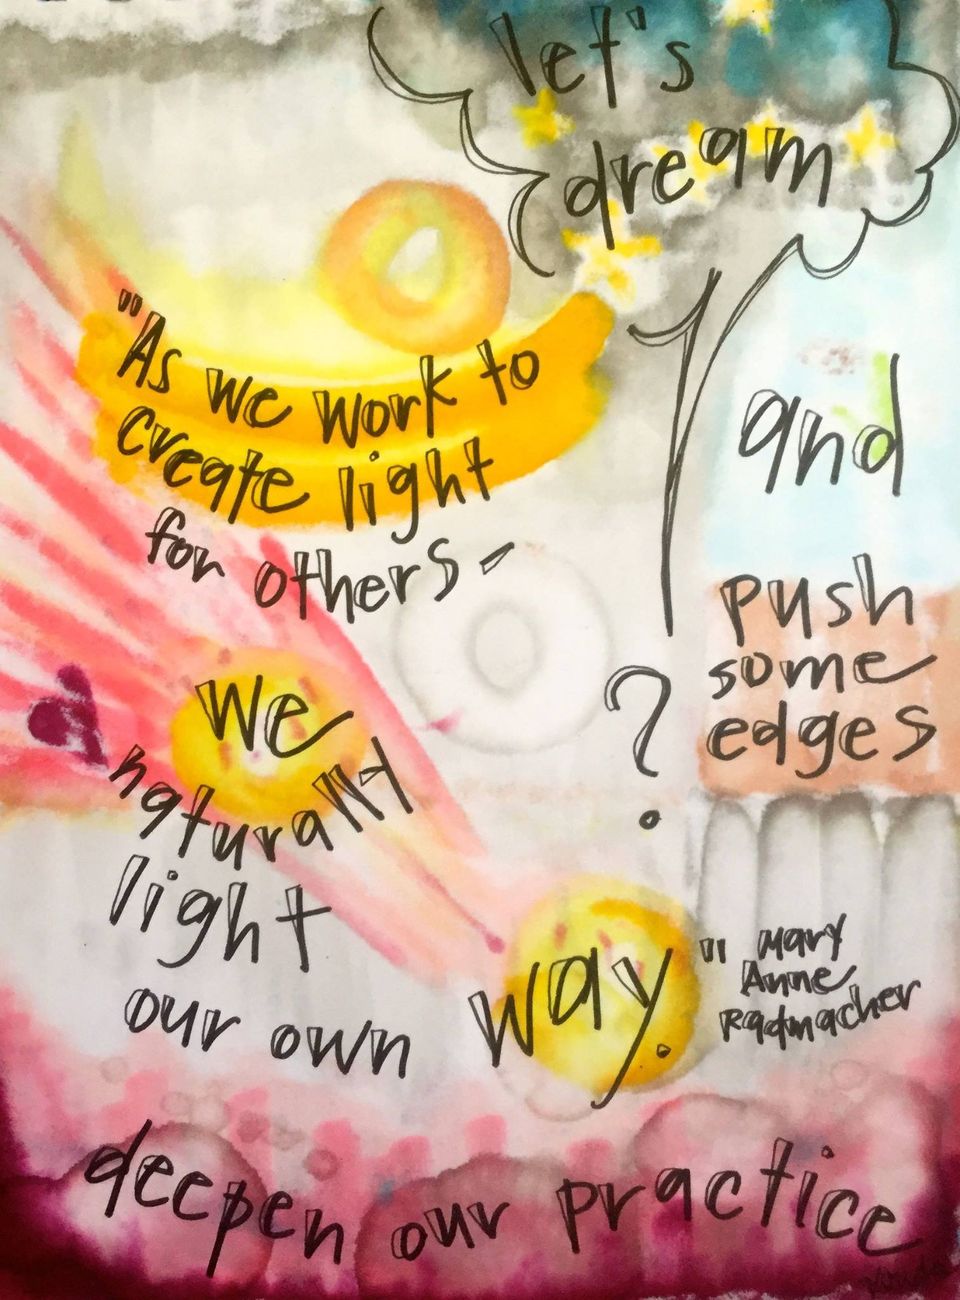 let's
dream
"As we work to
create light
for others -
we
naturally
light
our own way."
Mary
Anne
Radmacher
?
and
push
some
edges
deepen our practice